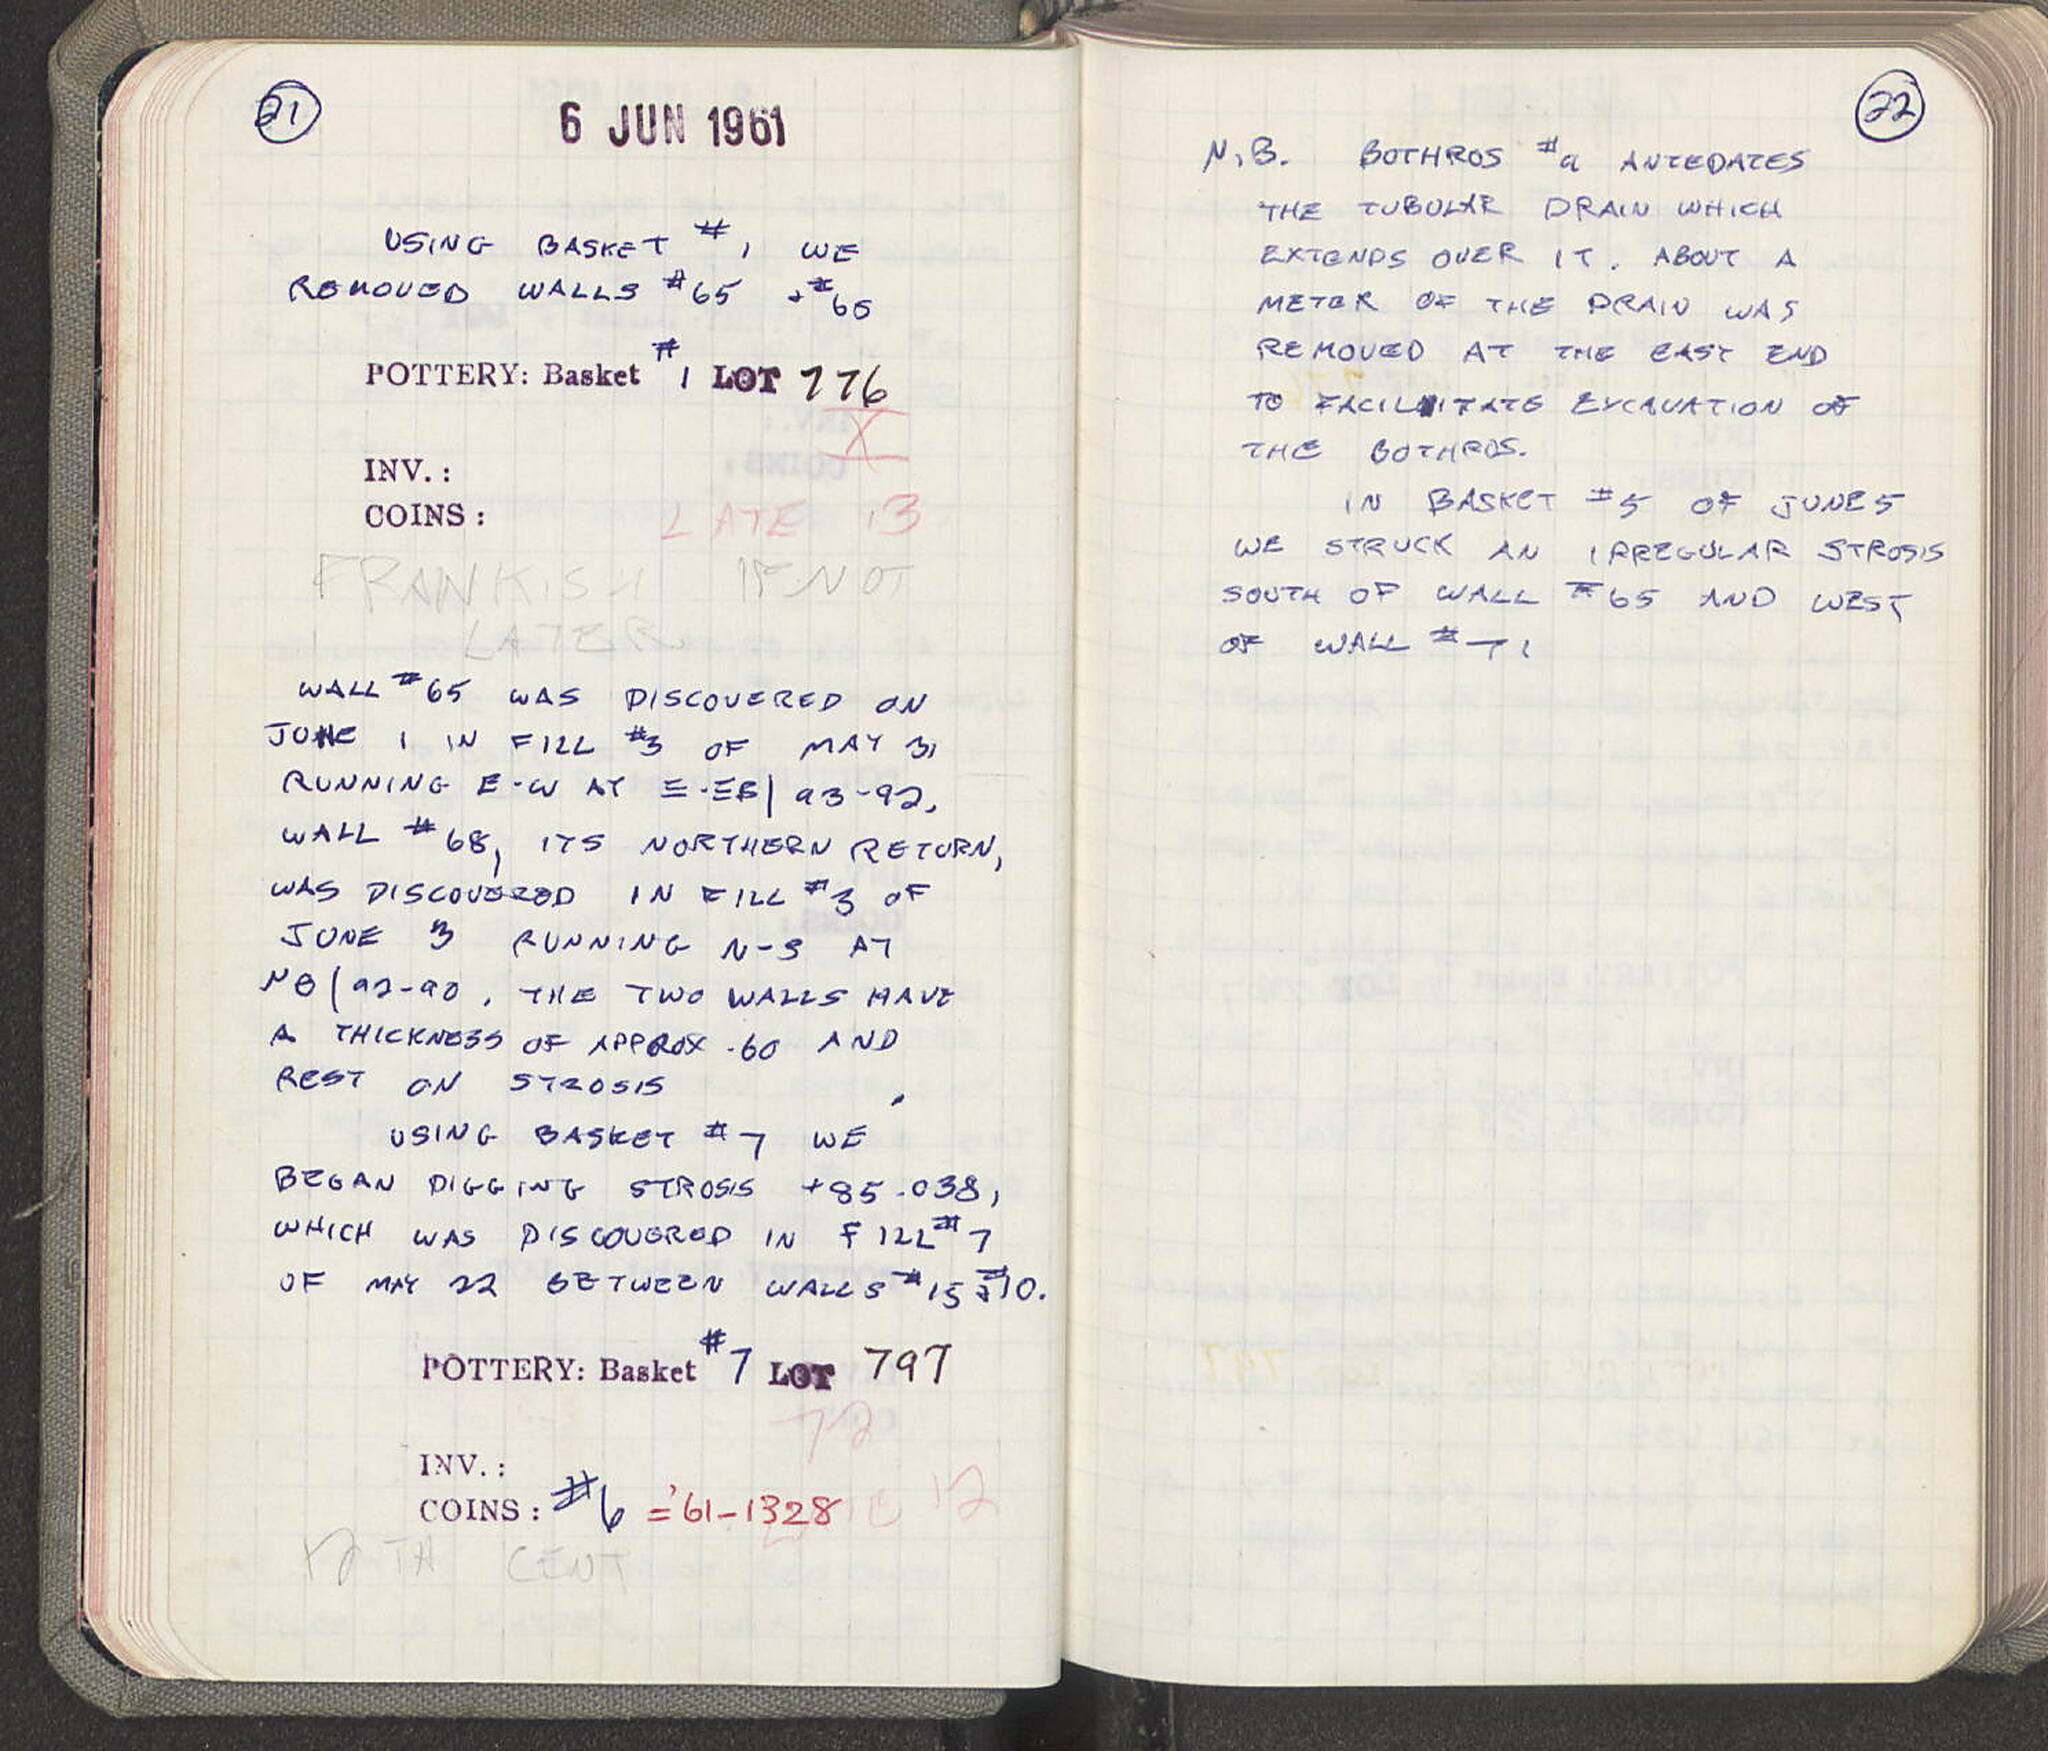 21
6 JUN 1961
USING BASKET #1 WE
REMOVED WALLS #65 + #68
POTTERY: Basket #1 LOT 776
X
INV.:
COINS:
LATE 13
FRANKISH IF NOT
LATER
WALL #65 WAS DISCOVERED ON
JUNE 1 IN FILL #3 OF MAY 31
RUNNING E-W AT E-EB/93-92.
WALL #68, ITS NORTHERN RETURN,
WAS DISCOVERED IN FILL #3 OF
JUNE 3 RUNNING N-S AT
NB/92-90. THE TWO WALLS HAVE
A THICKNESS OF APPROX .60 AND
REST ON STROSIS .
USING BASKET #7 WE
BEGAN DIGGING STROSIS +85.038,
WHICH WAS DISCOVERED IN FILL #7
OF MAY 22 BETWEEN WALLS #15 + #10.
POTTERY: Basket #7 LOT 797
72
INV.:
COINS: #6 = '61-1328 LATE 12
12TH CENT
22
N.B. BOTHROS #9 ANTEDATES
THE TUBULAR DRAIN WHICH
EXTENDS OVER IT. ABOUT A
METER OF THE DRAIN WAS
REMOVED AT THE EAST END
TO FACILITATE EXCAVATION OF
THE BOTHROS.
IN BASKET #5 OF JUNE 5
WE STRUCK AN IRREGULAR STROSIS
SOUTH OF WALL #65 AND WEST
OF WALL #71